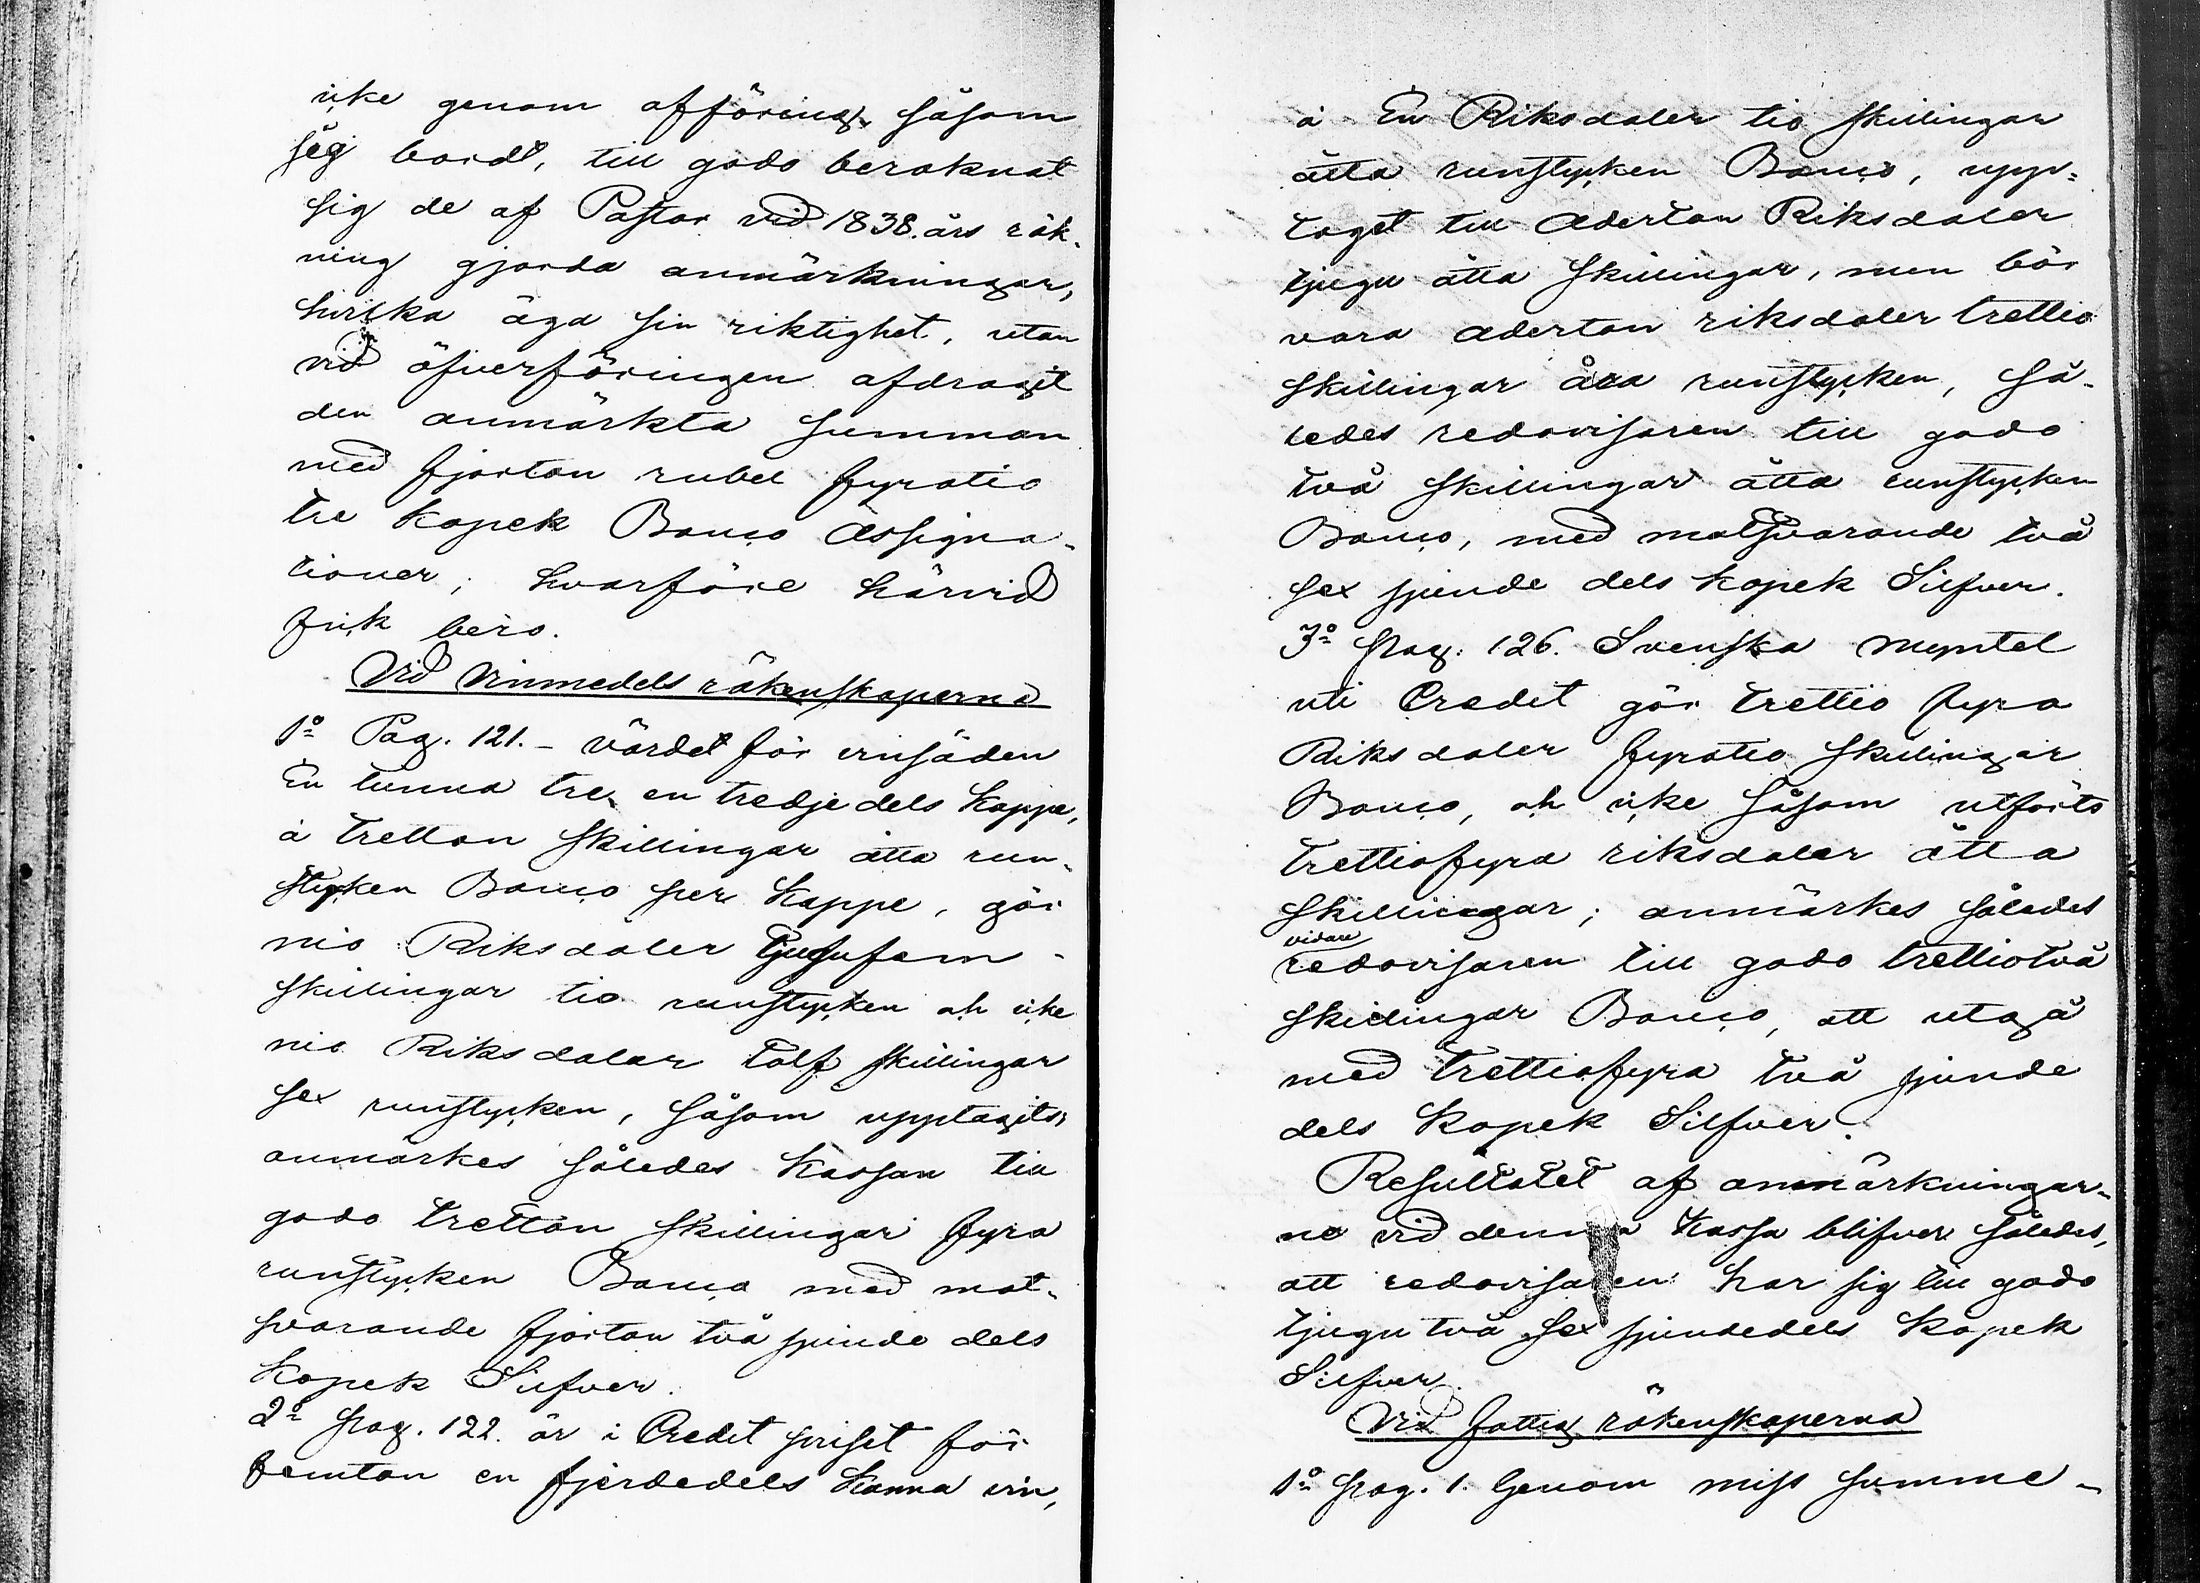 icke genom afföring, såsom
sig bordt, till godo beräknat
sig de af Pastor vid 1838. års räk-
ning gjorda anmärkningar,
hvilka äga sin riktighet, utan
vid öfverföringen afdragit
den anmärkta summan
med fjorton rubel fyratio
tre kopek Banco Assigna-
tioner; hvarföre härvid
fick bero.
Vid Vinmedels räkenskaperna
1º Pag. 121. - värdet för vinsäden
En tunna tre en tredjedels kappe,
à tretton skillingar åtta run-
stycken Banco per kappe, gör
nio Riksdaler tjugufem
skillingar tio runstycken och icke
nio Riksdaler tolf skillingar
sex runstycken, såsom upptagits,
anmärkes således kassan till
godo tretton skillingar fyra
runstycken Banco med mot-
svarande fjorton två sjunde dels
kopek Silfver.
2º pag. 122. är i Credit priset för
femton en fjerdedels kanna vin,
à En Riksdaler tio skillingar
åtta runstycken Banco, upp-
taget till Aderton Riksdaler
tjugu åtta skillingar, men bör
vara aderton riksdaler trettio
skillingar åtta runstycken, så-
ledes redovisaren till godo
två skillingar åtta runstycken
Banco, med motsvarande två
sex sjunde dels kopek Silfver.
3º pag. 126. Svenska myntet
uti Credit gör trettio fyra
Riksdaler fyratio skillingar
Banco, och icke såsom utförts
trettiofyra riksdaler åtta
skillingar; anmärkes således
vidare
redovisaren till godo trettiotvå
skillingar Banco, att utgå
med trettiofyra två sjunde
dels kopek Silfver.
Resultatet af anmärkningar-
ne vid denna kassa blifver således,
att redovisaren har sig till godo
tjugu två sex sjundedels kopek
Silfver.
Vid fattig räkenskaperna
1º pag. 1. Genom miss summe-